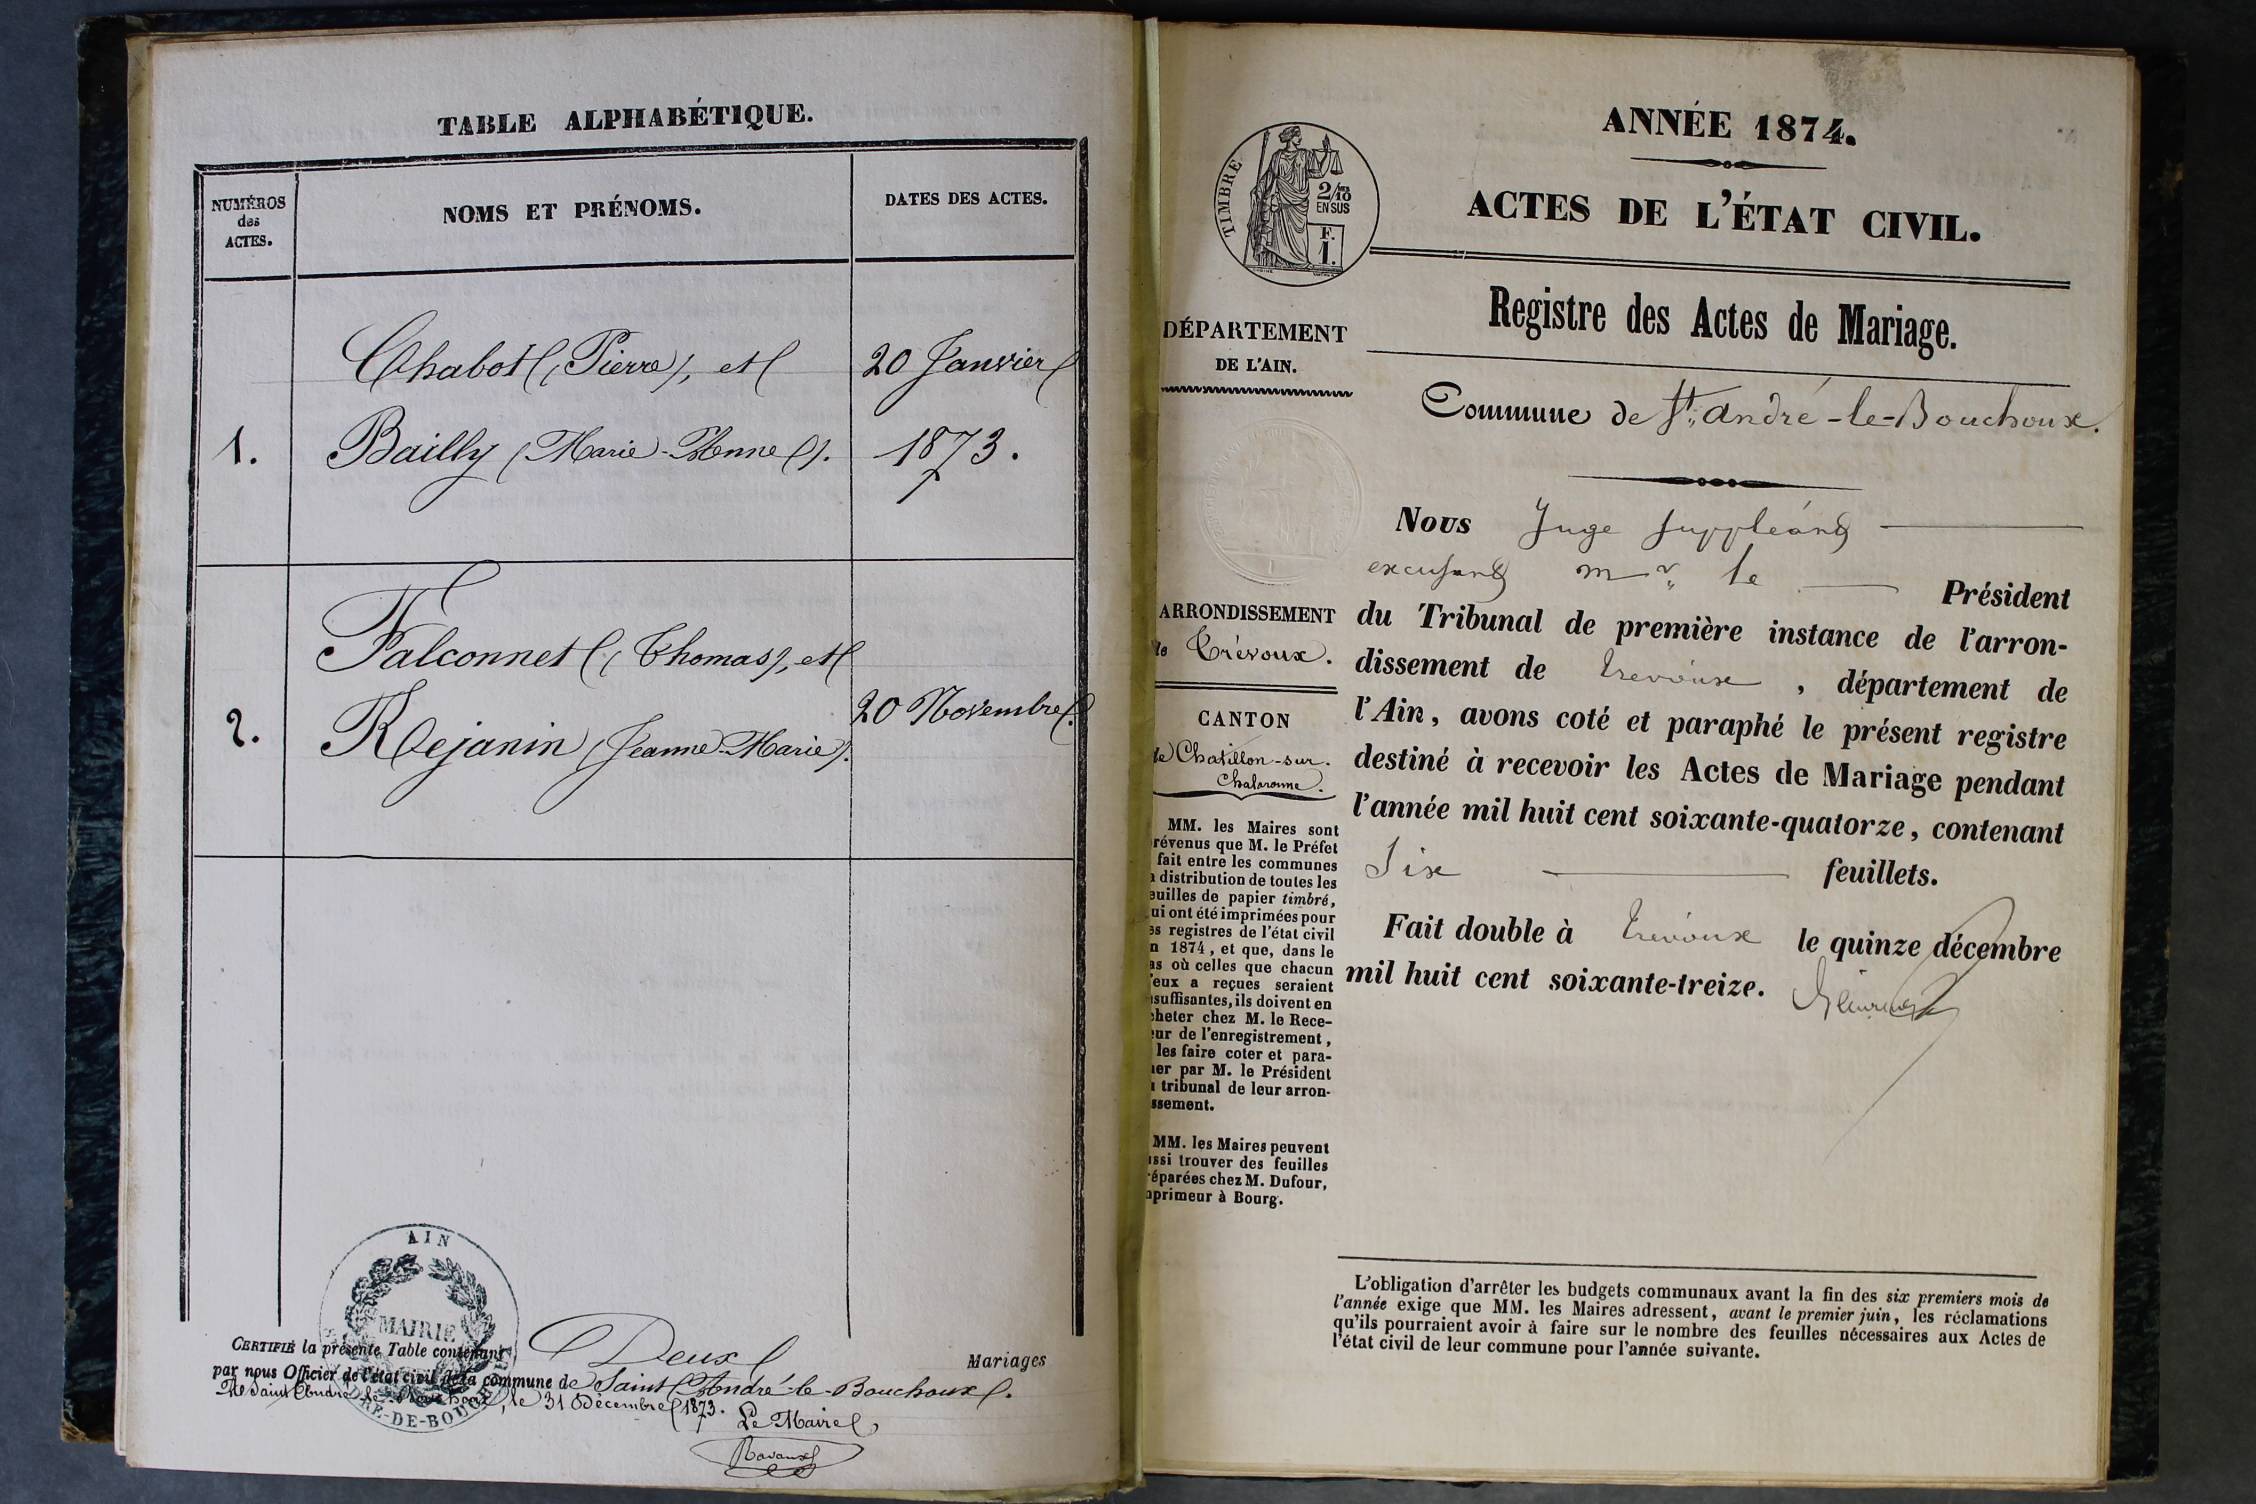 TABLE ALPHABÉTIQUE.
NUMÉROS
des
ACTES.
NOMS ET PRÉNOMS.
DATES DES ACTES.
Chabot (Pierre), et
20 Janvier
1.
Bailly (Marie-Anne).
1873.
Falconnet (Thomas), et
2.
Rejanin (Jeanne-Marie).
20 Novembre.
AIN
MAIRIE
CERTIFIÉ la présente Table contenant
Deux
Mariages
par nous Officier de l'état civil de la commune de Saint André-le-Bouchoux.
A Saint André-le-Bouchoux, le 31 Décembre 1873.
Le Maire,
ANNÉE 1874.
ACTES DE L'ÉTAT CIVIL.
TIMBRE
2/10
EN SUS
F.
1.
Registre des Actes de Mariage.
DÉPARTEMENT
DE L'AIN.
Commune de St. André-le-Bouchoux.
ARRONDISSEMENT
de Trévoux.
CANTON
de Chatillon-sur-
Chalaronne.
MM. les Maires sont
révenus que M. le Préfet
fait entre les communes
a distribution de toutes les
euilles de papier timbré,
ui ont été imprimées pour
es registres de l'état civil
n 1874, et que, dans le
as où celles que chacun
'eux a reçues seraient
nsuffisantes, ils doivent en
cheter chez M. le Rece-
eur de l'enregistrement,
les faire coter et para-
her par M. le Président
u tribunal de leur arron-
ssement.
MM. les Maires peuvent
ussi trouver des feuilles
réparées chez M. Dufour,
mprimeur à Bourg.
Nous Juge suppléant
excusant Mr. le Président
du Tribunal de première instance de l'arron-
dissement de Trevoux, département de
l'Ain, avons coté et paraphé le présent registre
destiné à recevoir les Actes de Mariage pendant
l'année mil huit cent soixante-quatorze, contenant
Six feuillets.
Fait double à Trevoux le quinze décembre
mil huit cent soixante-treize.
L'obligation d'arrêter les budgets communaux avant la fin des six premiers mois de
l'année exige que MM. les Maires adressent, avant le premier juin, les réclamations
qu'ils pourraient avoir à faire sur le nombre des feuilles nécessaires aux Actes de
l'état civil de leur commune pour l'année suivante.